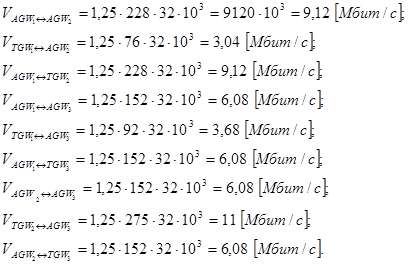 V_{AGW_1↔AGW_2} = 1,25·228·32·10³ = 9120·10³ = 9,12 [Мбит/с];
V_{TGW_1↔AGW_2} = 1,25·76·32·10³ = 3,04 [Мбит/с];
V_{AGW_1↔TGW_2} = 1,25·228·32·10³ = 9,12 [Мбит/с];
V_{AGW_1↔AGW_3} = 1,25·152·32·10³ = 6,08 [Мбит/с];
V_{TGW_1↔AGW_3} = 1,25·92·32·10³ = 3,68 [Мбит/с];
V_{AGW_1↔TGW_3} = 1,25·152·32·10³ = 6,08 [Мбит/с];
V_{AGW_2↔AGW_3} = 1,25·152·32·10³ = 6,08 [Мбит/с];
V_{TGW_2↔AGW_3} = 1,25·275·32·10³ = 11 [Мбит/с];
V_{AGW_2↔TGW_3} = 1,25·152·32·10³ = 6,08 [Мбит/с].